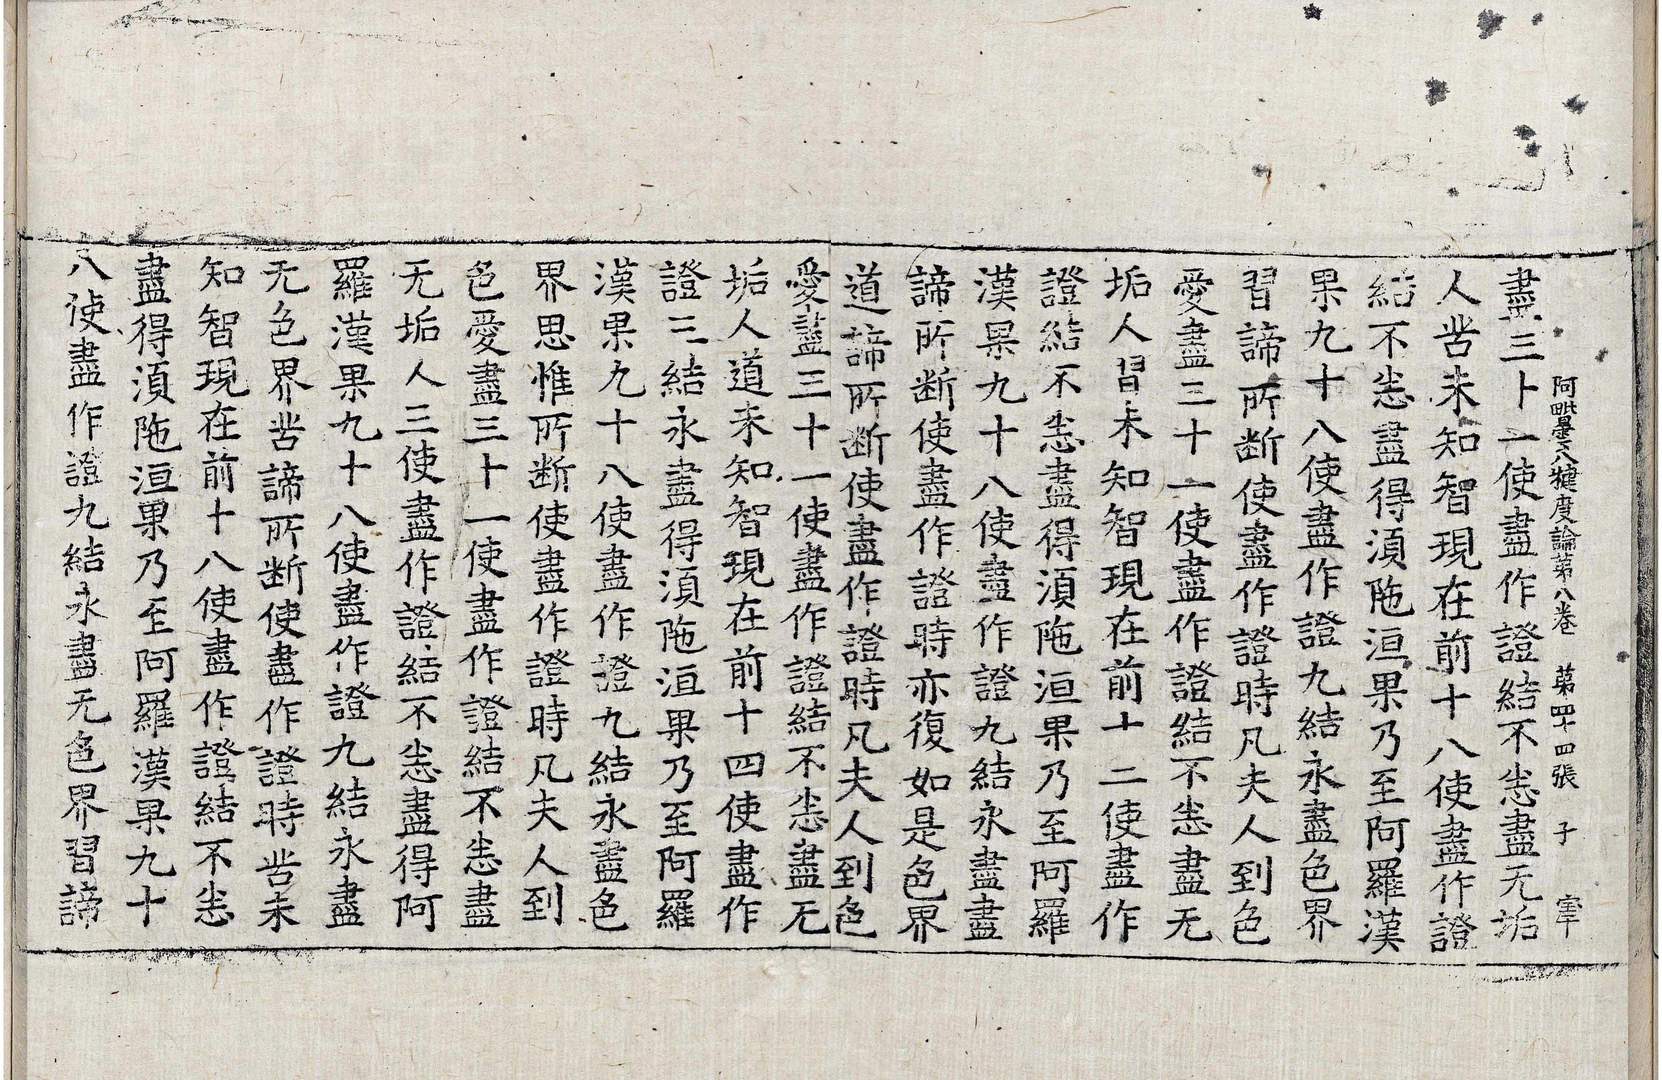 阿毗曇八犍度論第八卷 第四十四張 子 宰
盡三十一使盡作證結不悉盡无垢
人苦未知智現在前十八使盡作證
結不悉盡得湏陁洹果乃至阿羅漢
果九十八使盡作證九結永盡色界
習諦所断使盡作證時凡夫人到色
愛盡三十一使盡作證結不悉盡无
垢人習未知智現在前十二使盡作
證結不悉盡得湏陁洹果乃至阿羅
漢果九十八使盡作證九結永盡盡
諦所断使盡作證時亦復如是色界
道諦所断使盡作證時凡夫人到色
愛盡三十一使盡作證結不悉盡无
垢人道未知智現在前十四使盡作
證三結永盡得湏陁洹果乃至阿羅
漢果九十八使盡作證九結永盡色
界思惟所断使盡作證時凡夫人到
色愛盡三十一使盡作證結不悉盡
无垢人三使盡作證結不悉盡得阿
羅漢果九十八使盡作證九結永盡
无色界苦諦所断使盡作證時苦未
知智現在前十八使盡作證結不悉
盡得湏陁洹果乃至阿羅漢果九十
八使盡作證九結永盡无色界習諦